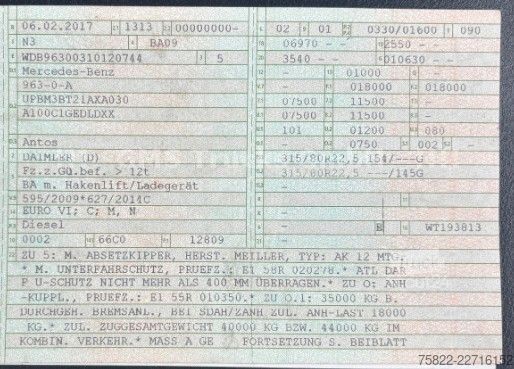 06.02.2017 1313 00000000-
N3 BA09
WDB96300310120744 5
Mercedes-Benz
963-0-A
UPBM3BT21AXA030
A100C1GEDLDXX
Antos
DAIMLER (D)
Fz.z.Gü.bef. > 12t
BA m. Hakenlift/Ladegerät
595/2009*627/2014C
EURO VI; C; M, N
Diesel
0002 66C0 12809
02 9 01 0330/01600 090
06970 - - 2550 - -
3540 - - 010630 - -
- 01000 -
- 018000 018000
07500 11500 -
07500 11500 -
101 01200 080
- 0750 002 -
315/80R22,5 154/---G
315/80R22,5 ---/145G
-
-
-
- E WT193813
-
ZU 5: M. ABSETZKIPPER, HERST. MEILLER, TYP: AK 12 MTG.
* M. UNTERFAHRSCHUTZ, PRUEFZ.: E1 58R 020278.* ATL DAR
F U-SCHUTZ NICHT MEHR ALS 400 MM ÜBERRAGEN.* ZU O: ANH
-KUPPL., PRUEFZ.: E1 55R 010350.* ZU O.1: 35000 KG B.
DURCHGEH. BREMSANL., BEI SDAH/ZANH ZUL. ANH-LAST 18000
KG.* ZUL. ZUGGESAMTGEWICHT 40000 KG BZW. 44000 KG IM
KOMBIN. VERKEHR.* MASS A GE FORTSETZUNG S. BEIBLATT
75822-22716152